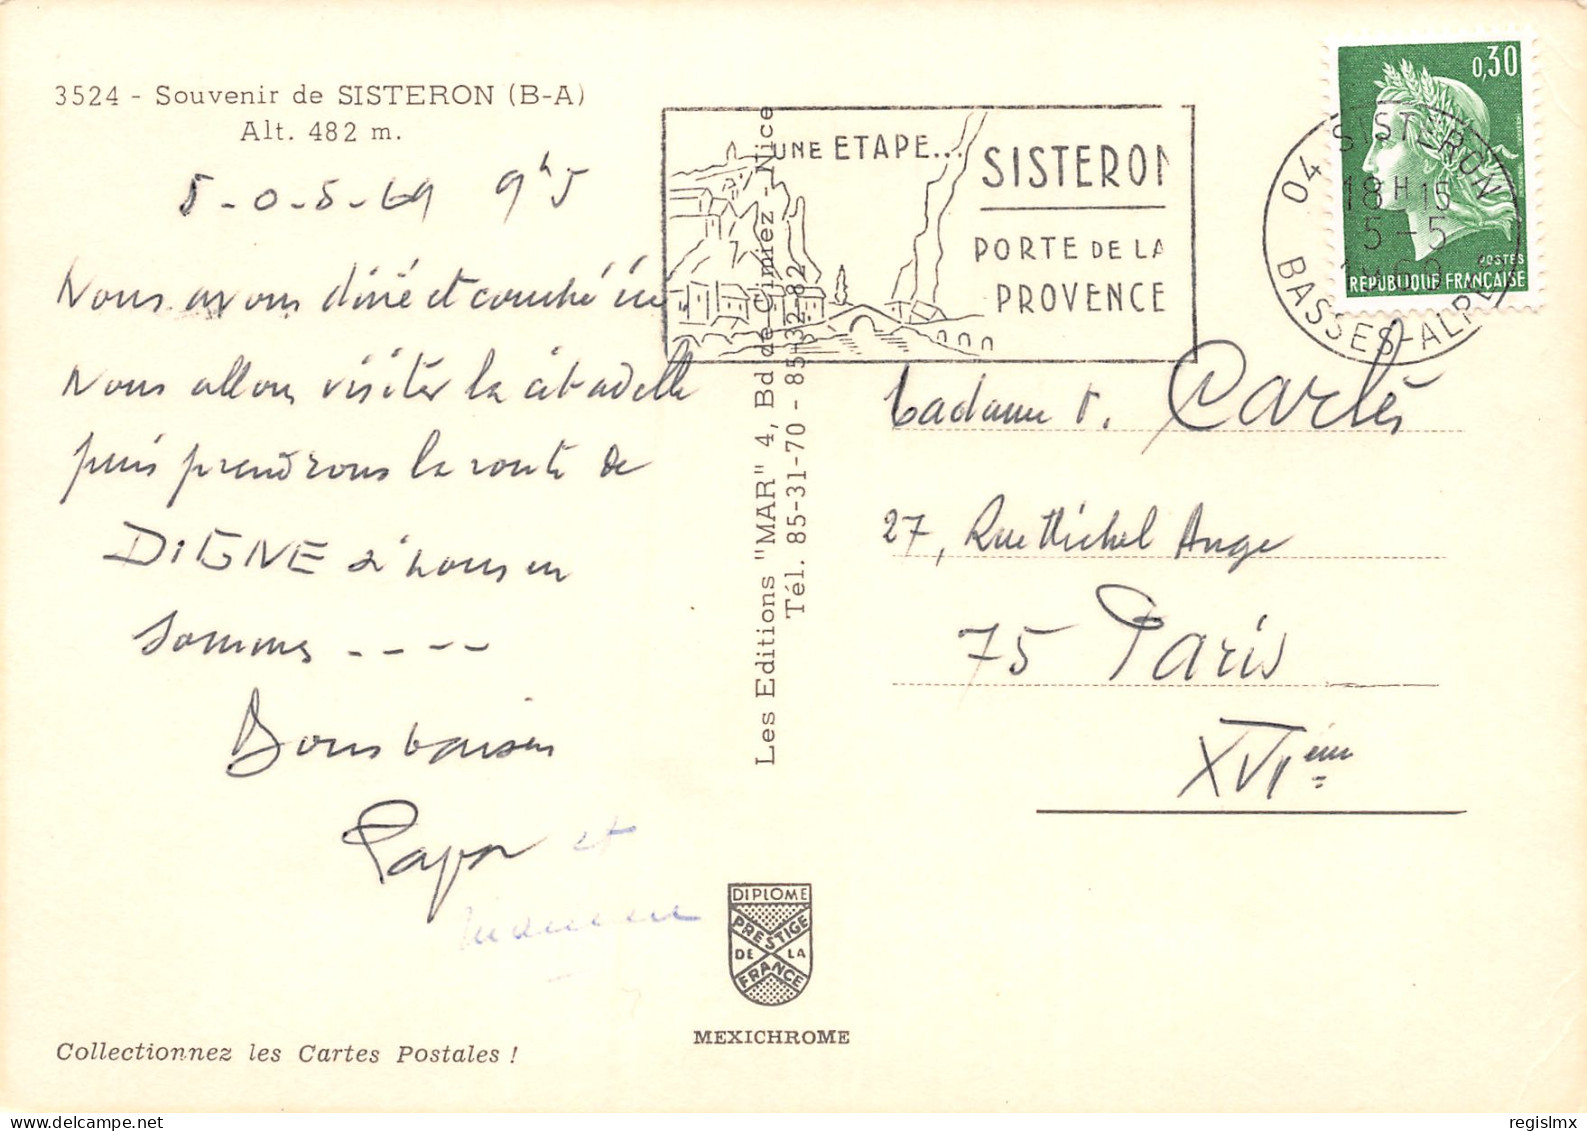 3524 - Souvenir de SISTERON (B-A)
Alt. 482 m.
5-0.5-69 9h5
Nous avons diné et couché ici
Nous allons visiter la citadelle
puis prendrons la route de
DIGNE si nous en
sommes ----
Bons baisers
Papa et
maman
Collectionnez les Cartes Postales !
Les Editions "MAR" 4, Bd de Cimiez - Nice
Tél. 85-31-70 - 85-32-82
UNE ETAPE...
SISTERON
PORTE DE LA
PROVENCE
0,30
POSTES
REPUBLIQUE FRANÇAISE
04 SISTERON
18H15
5-5
1969
BASSES-ALPES
Madame Carlès
27, Rue Michel Ange
75 Paris
XVIème
DIPLOME
PRESTIGE
DE LA
FRANCE
MEXICHROME
regislmx